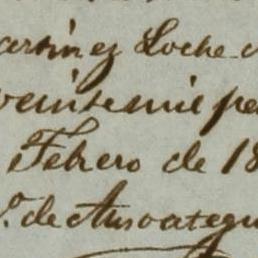 artinez Loche
veintemil pe
Febrero de 18
º. de Ansoategui